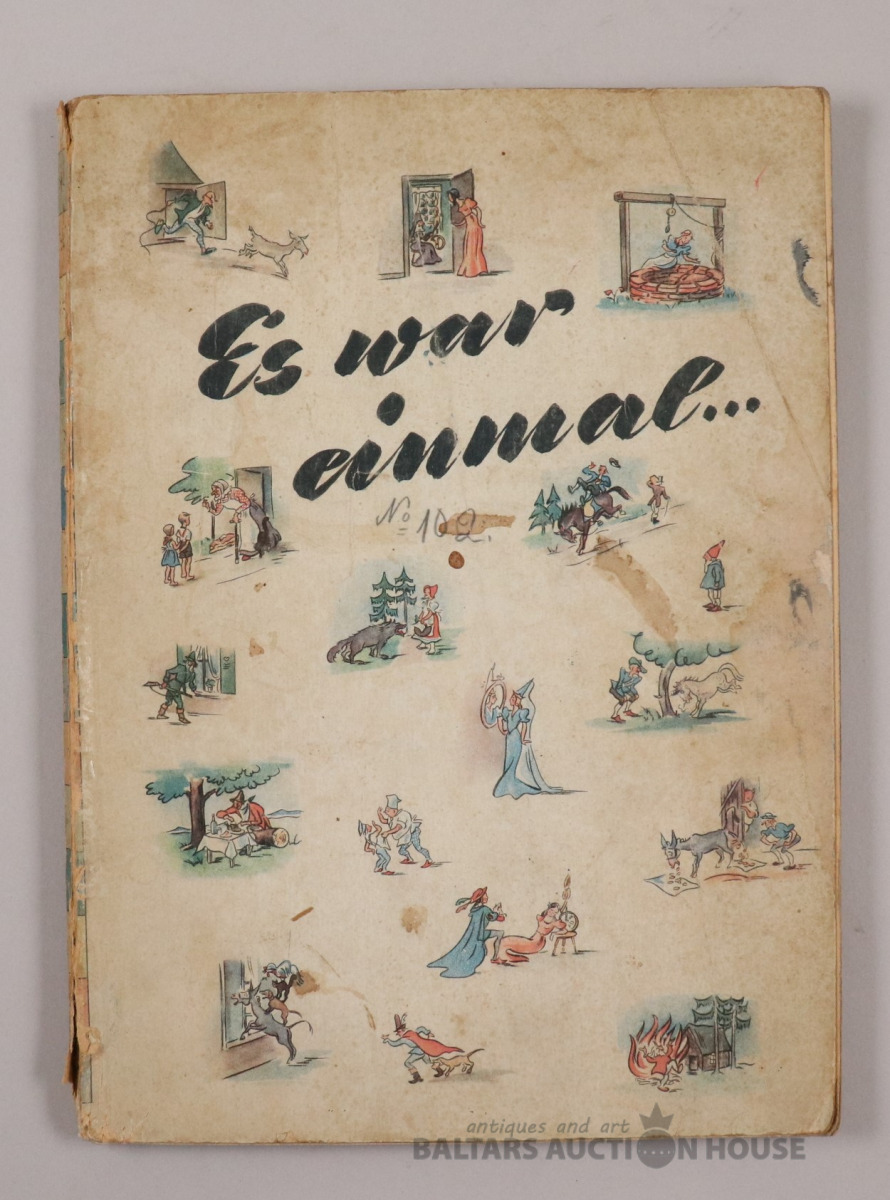 Es war
einmal...
No 102.
antiques and art
BALTARS AUCTION HOUSE